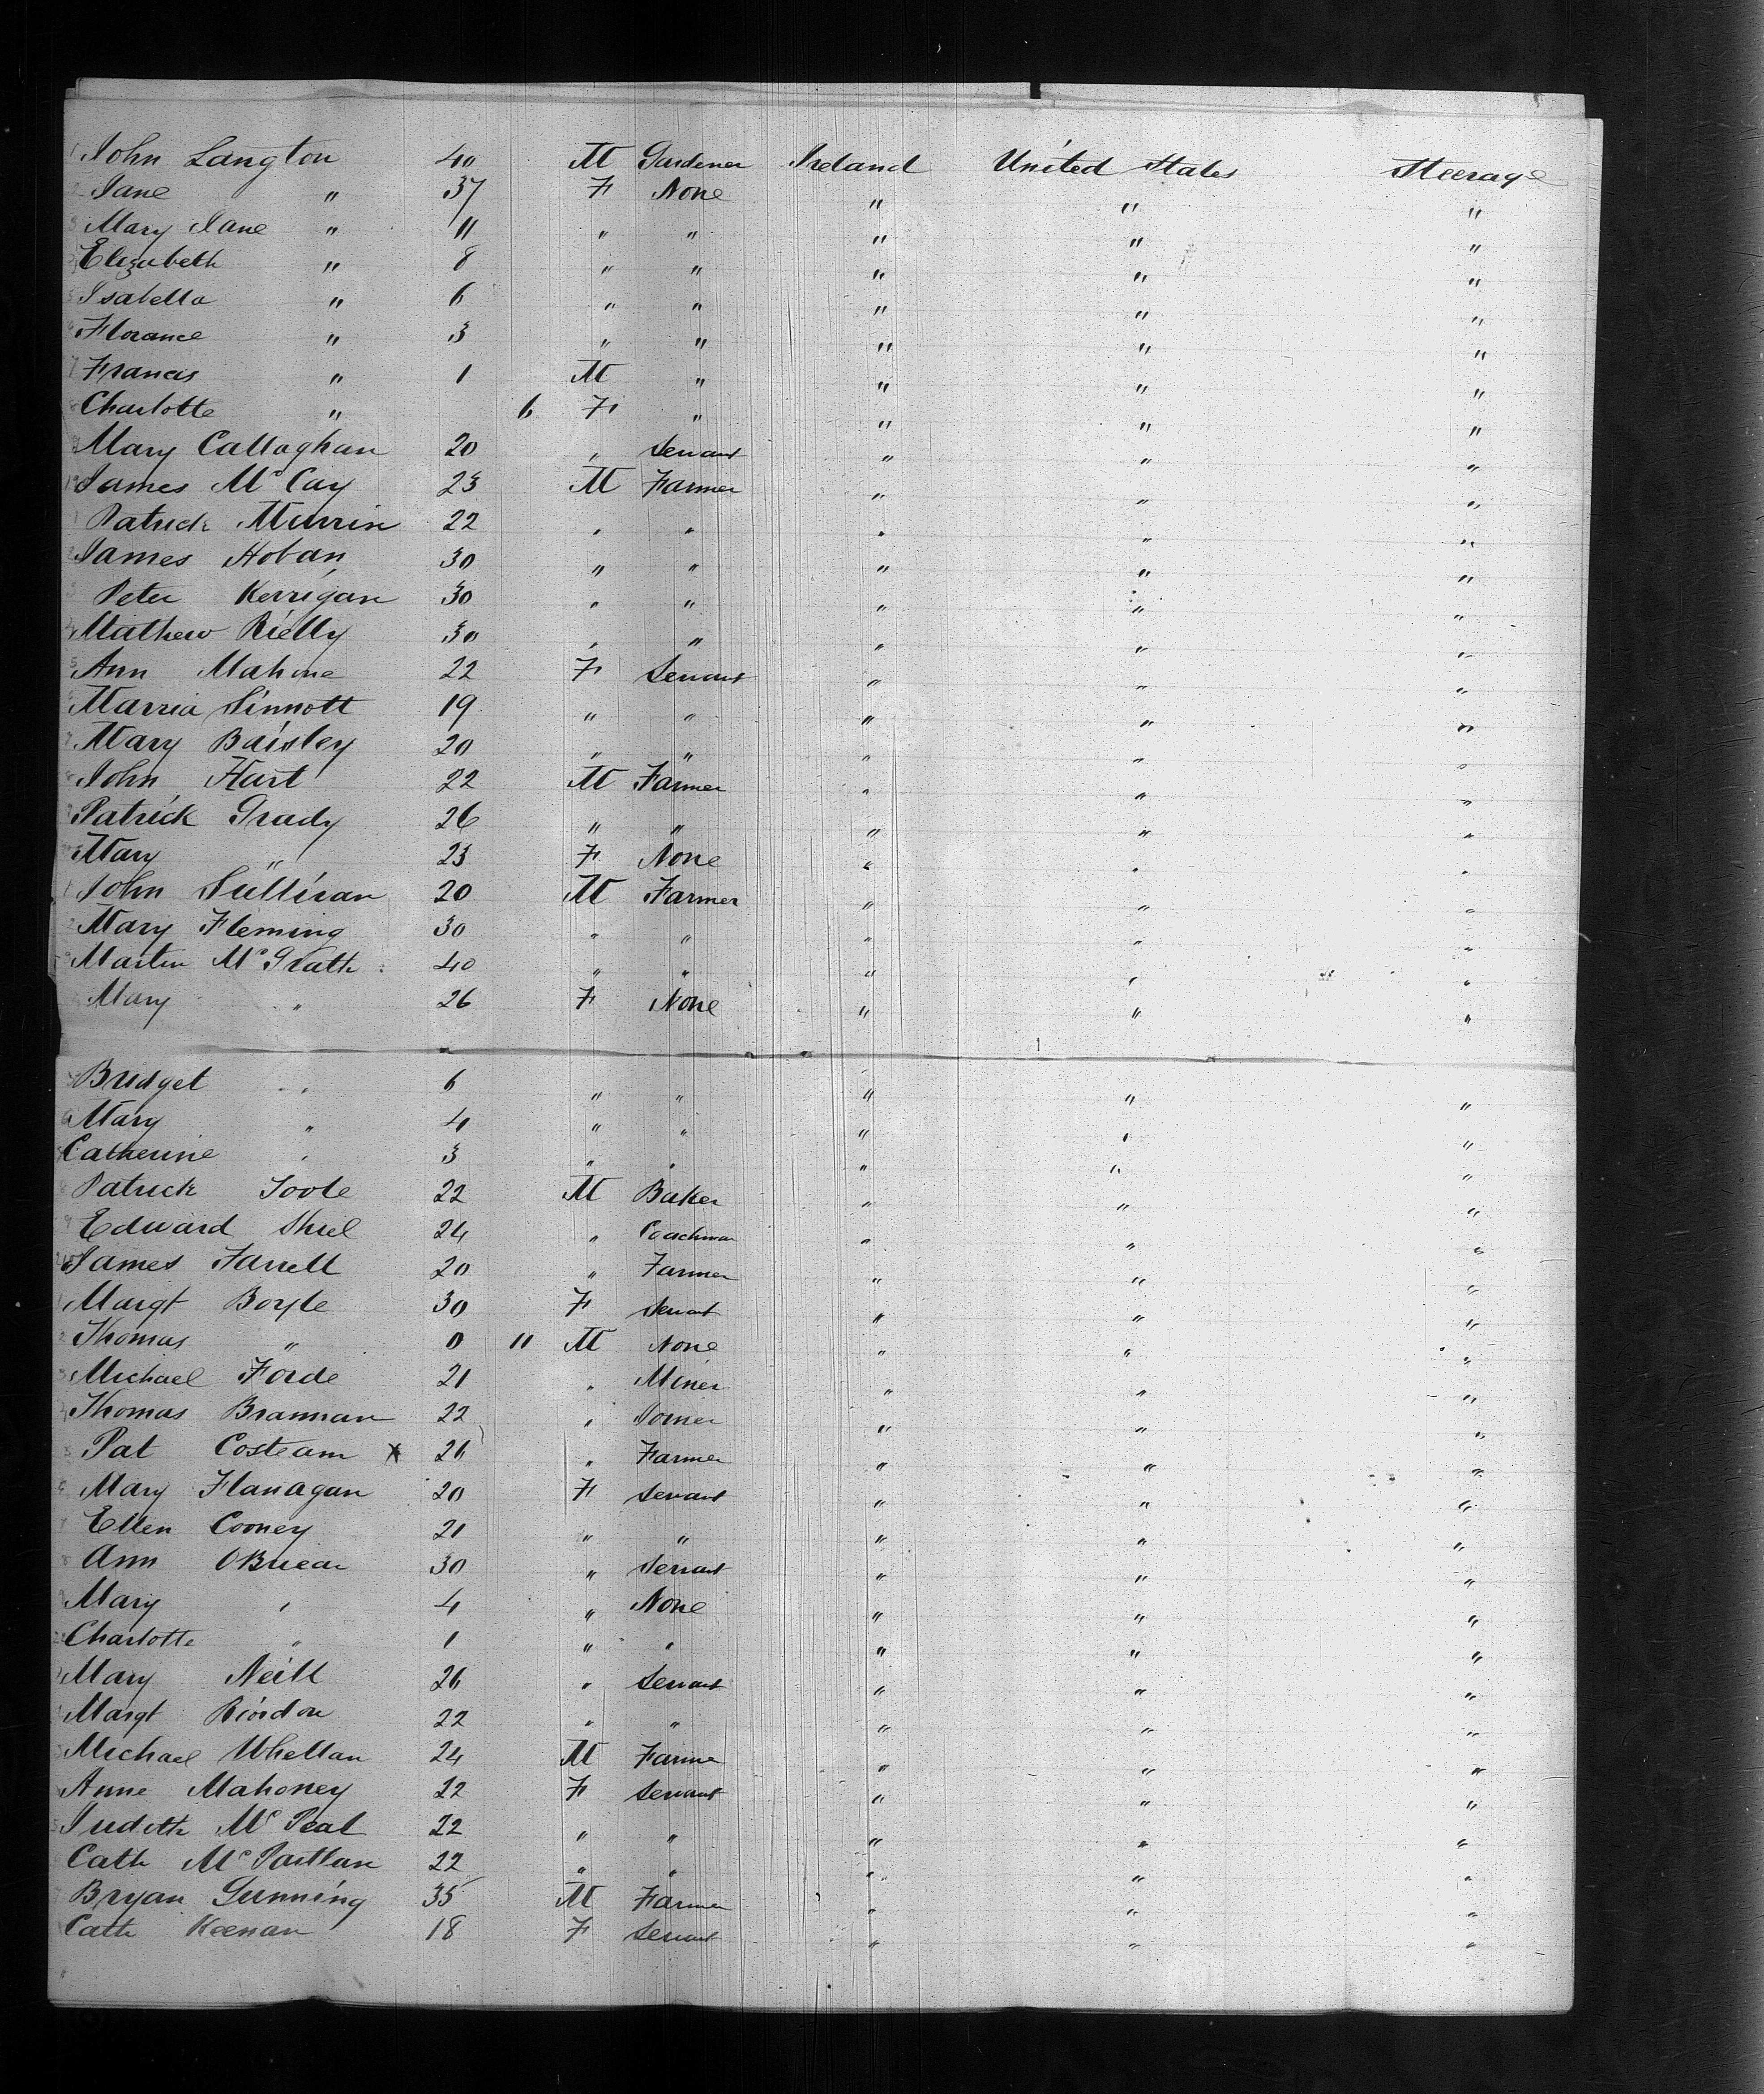 John Langton 40 M Gardener Ireland United States Steerage
Jane " 37 F None " " "
Mary Jane " 11 " " " " "
Elizabeth " 8 " " " " "
Isabella " 6 " " " " "
Florance " 3 " " " " "
Francis " 1 M " " " "
Charlotte " 6 F " " " "
Mary Callaghan 20 " Servant " " "
James McCay 23 M Farmer " " "
Patrick Murrin 22 " " " " "
James Hoban 30 " " " " "
Peter Kerrigan 30 " " " " "
Mathew Rielly 30 " " " " "
Ann Mahone 22 F Servant " " "
Marria Sinnott 19 " " " " "
Mary Baisley 20 " " " " "
John Hart 22 M Farmer " " "
Patrick Grady 26 " " " " "
Mary " 23 F None " " "
John Sullivan 20 M Farmer " " "
Mary Fleming 30 " " " " "
Martin McGrath 40 " " " " "
Mary " 26 F None " " "
Bridget " 6 " " " " "
Mary " 4 " " " " "
Catherine " 3 " " " " "
Patrick Toole 22 M Baker " " "
Edward Shiel 24 " Coachman " " "
James Farrell 20 " Farmer " " "
Margt Boyle 30 F Servant " " "
Thomas " 0 11 M None " " "
Michael Forde 21 " Miner " " "
Thomas Brannan 22 " " " "
Pat x 26 " Farmer " " "
Mary Flanagan 20 F Servant " " "
Ellen Cooney 21 " " " " "
Ann OBriean 30 " Servant " " "
Mary " 4 " None " " "
Charlotte " 1 " " " " "
Mary Neill 26 " Servant " " "
Margt Riordon 22 " " " " "
Michael Whellan 24 M Farmer " " "
Anne Mahoney 22 F Servant " " "
Judith 22 " " " " "
Cath McPartlan 22 " " " " "
Bryan Gunning 35 M Farmer " " "
Cath Keenan 18 F Servant " " "